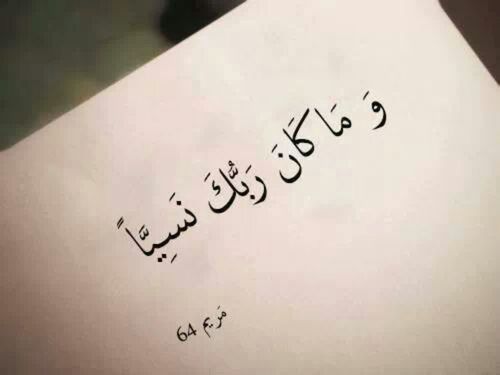 وَ مَا كَانَ رَبُّكَ نَسِيًّاً
مَريم 64